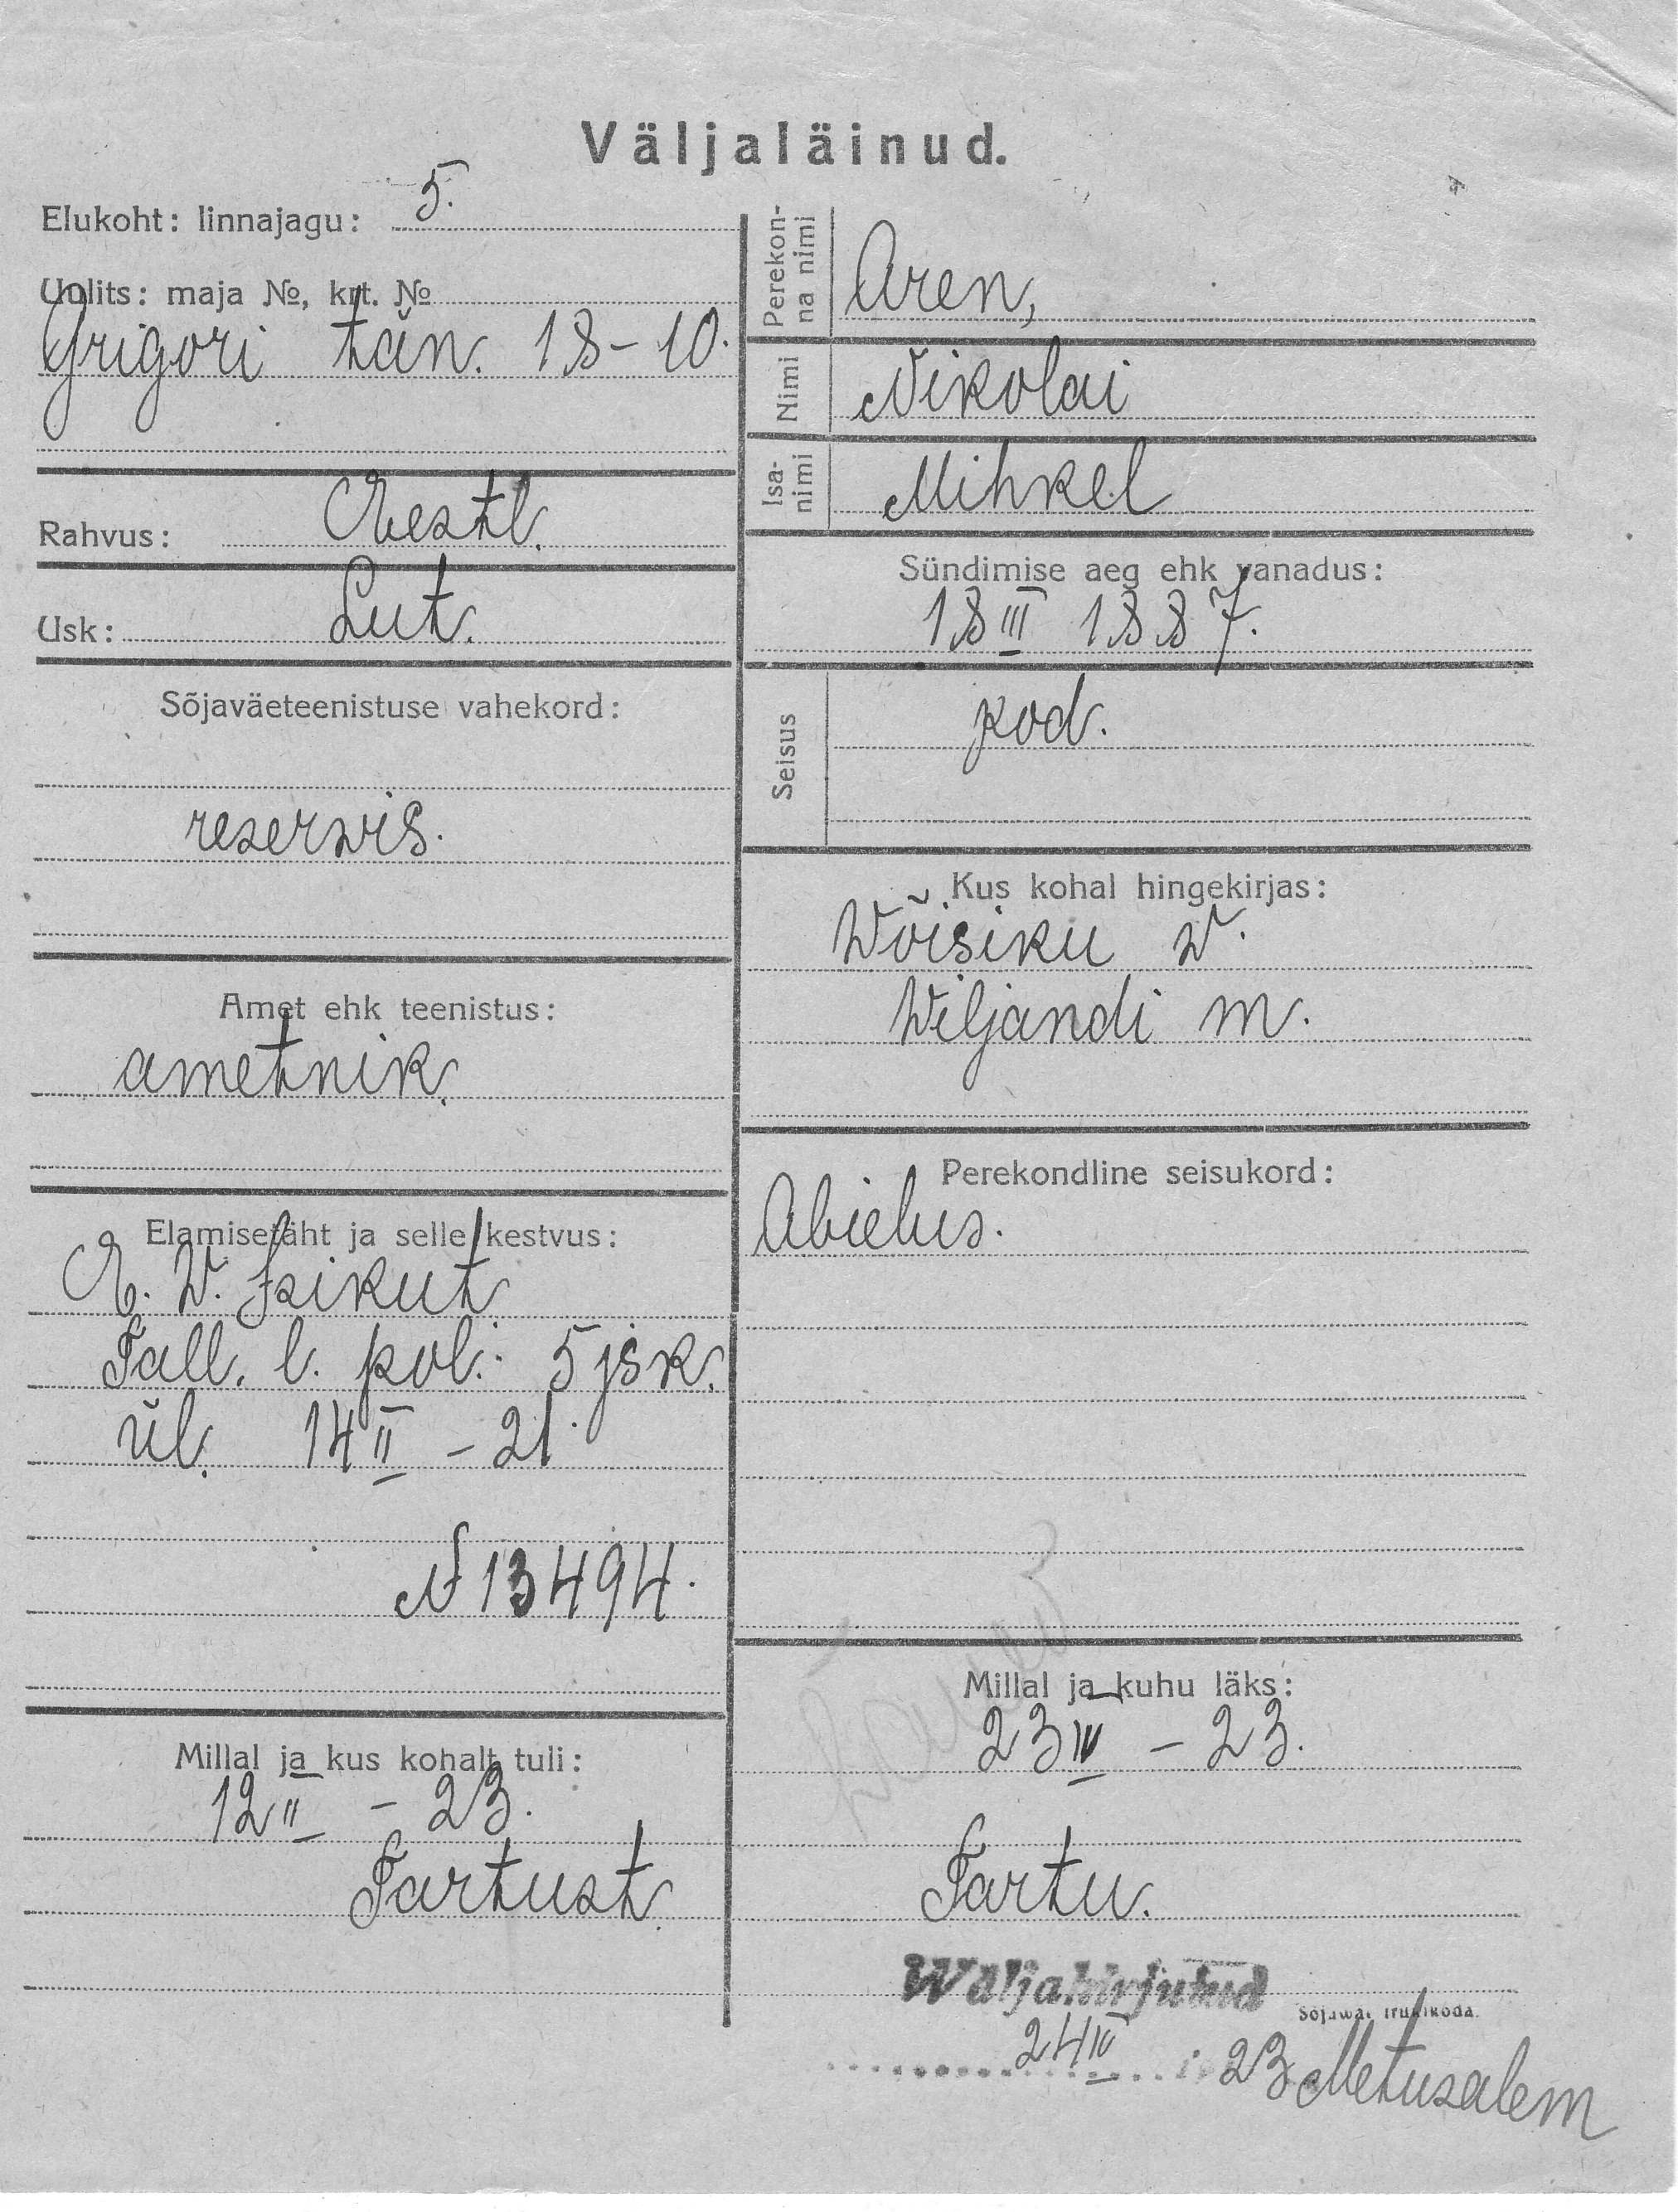 Väljaläinud.
Elukoht: linnajagu: 5.
Uulits: maja №, krt. №
Grigori tän. 18-10.
Rahvus: Eestl.
Usk: Lut.
Sõjaväeteenistuse vahekord:
reserwis.
Amet ehk teenistus:
ametnik.
Elamisetäht ja selle kestvus:
E. W. Isikut
Tall. l. pol. 5 jsk.
ül. 14 II - 21.
N 13494.
Millal ja kus kohalt tuli:
12 II - 23.
Tartust.
Perekonna nimi
Aren,
Nimi
Nikolai
Isanimi
Mihkel
Sündimise aeg ehk vanadus:
18 III 1887.
Seisus
kod.
Kus kohal hingekirjas:
Wõisiku w.
Wiljandi m.
Perekondline seisukord:
Abielus.
Millal ja kuhu läks:
23 IV - 23.
Tartu.
Wäljakirjutud
Sõjawäe trükikoda.
24 IV 23 Metusalem